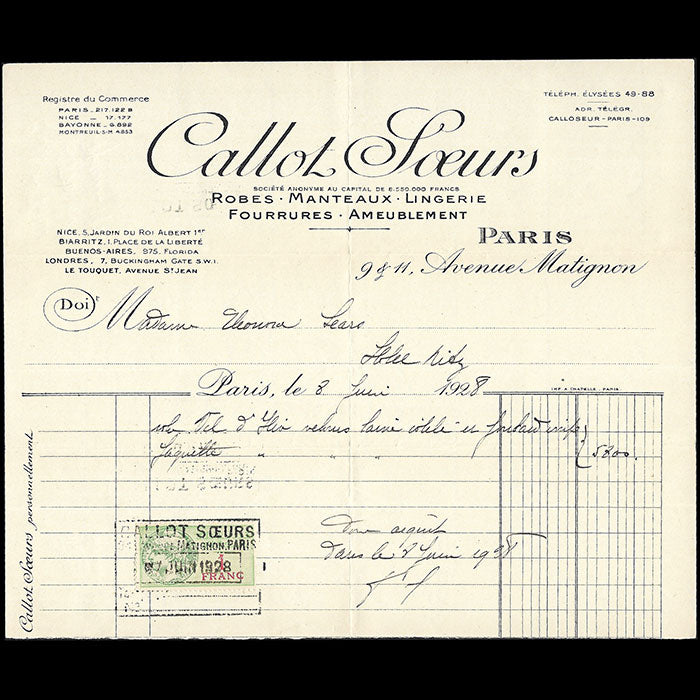 Registre du Commerce
PARIS _ 217.122 B
NICE _ 17.177
BAYONNE _ 6.892
MONTREUIL-S-M 4853
TÉLÉPH. ÉLYSÉES 49-88
ADR. TÉLÉGR.
CALLOSEUR-PARIS-109
Callot Sœurs
SOCIÉTÉ ANONYME AU CAPITAL DE 6.550.000 FRANCS
ROBES · MANTEAUX · LINGERIE
FOURRURES · AMEUBLEMENT
NICE, 5, JARDIN DU ROI ALBERT 1er
BIARRITZ, 1, PLACE DE LA LIBERTÉ
BUENOS-AIRES, 975, FLORIDA
LONDRES, 7, BUCKINGHAM GATE S.W.1.
LE TOUQUET, AVENUE ST JEAN
PARIS
9 & 11, Avenue Matignon
Doit
Madame Eleonora Sears
Hotel Ritz
Paris, le 8 Juin 1928
IMP. A. CHATELLE, PARIS
robe Tel d'
Jaquette " " " 5200.
Callot Sœurs personnellement
CALLOT SŒURS
MATIGNON, PARIS
7 JUIN 1928
1 FRANC
Pour acquit
Paris le 8 Juin 1928